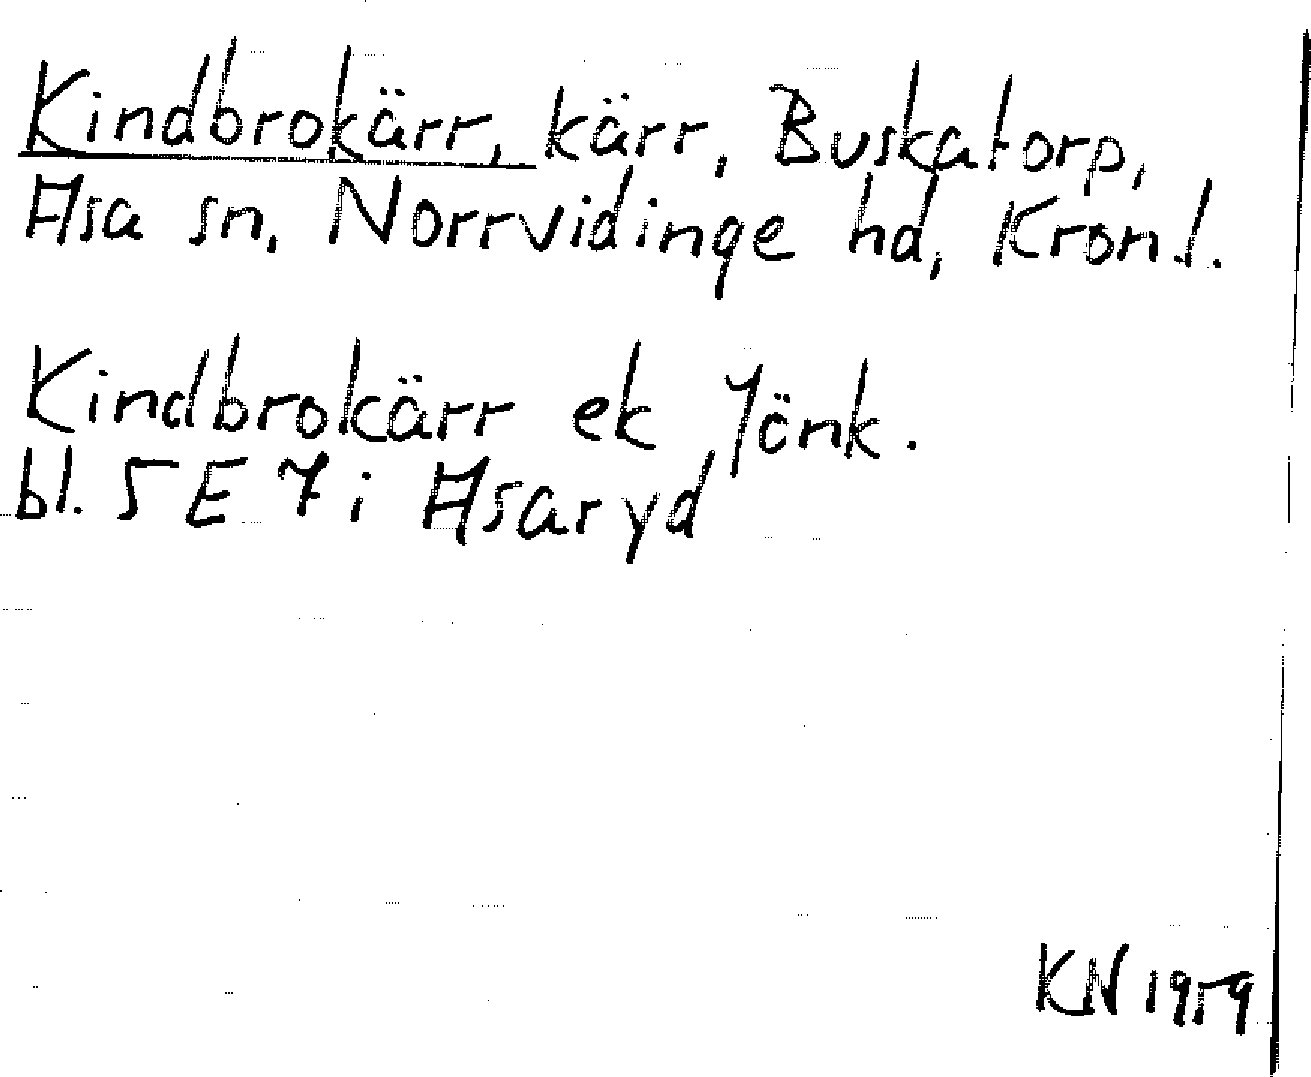 Kindbrokärr, kärr, Buskatorp,
Asa sn, Norrvidinge hd, Kron.l.
Kindbrokärr ek Jönk.
bl. 5 E 7 i Asaryd
KN 1959